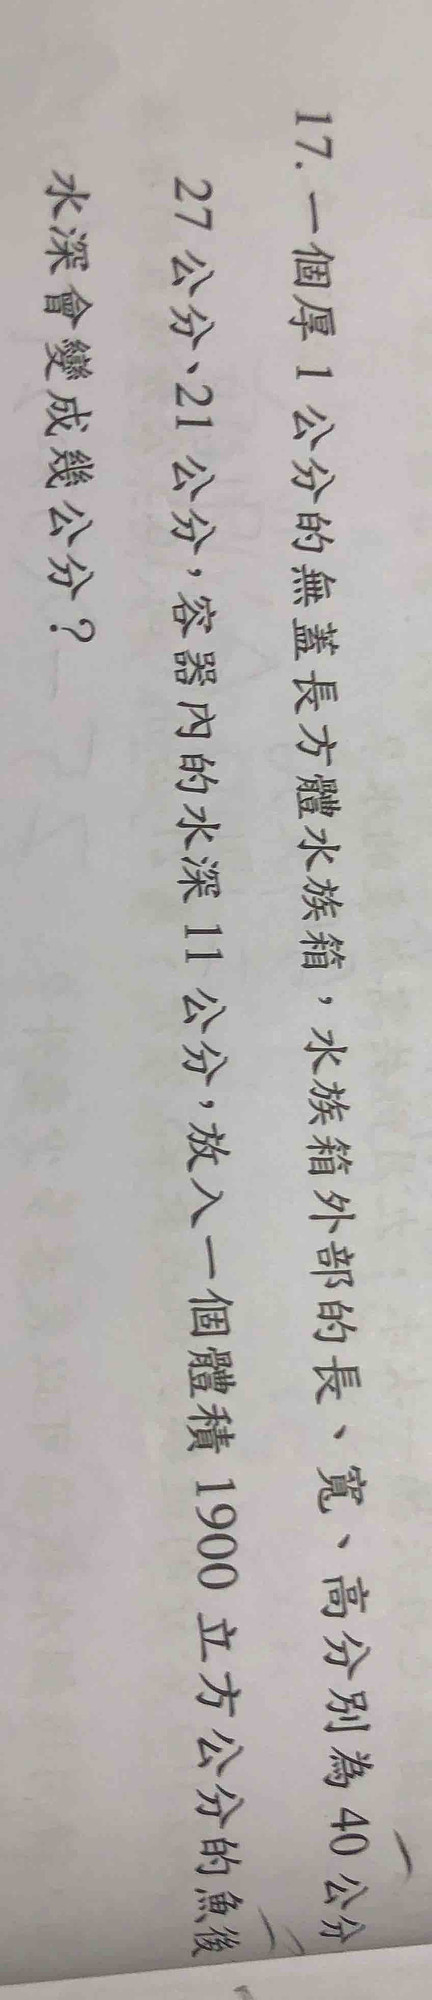 17. 一個厚 1 公分的無蓋長方體水族箱，水族箱外部的長、寬、高分別為 40 公分
27 公分、21 公分，容器內的水深 11 公分，放入一個體積 1900 立方公分的魚後
水深會變成幾公分？